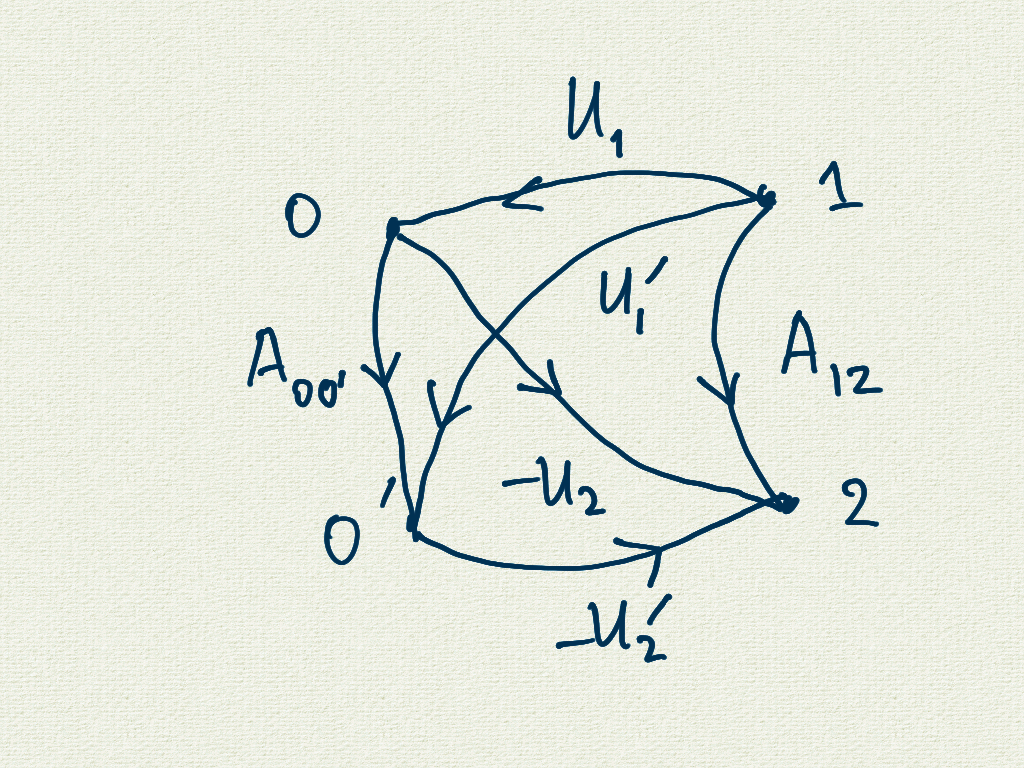 U₁
0
1
U₁′
A₀₀′
A₁₂
-U₂
0′
2
-U₂′